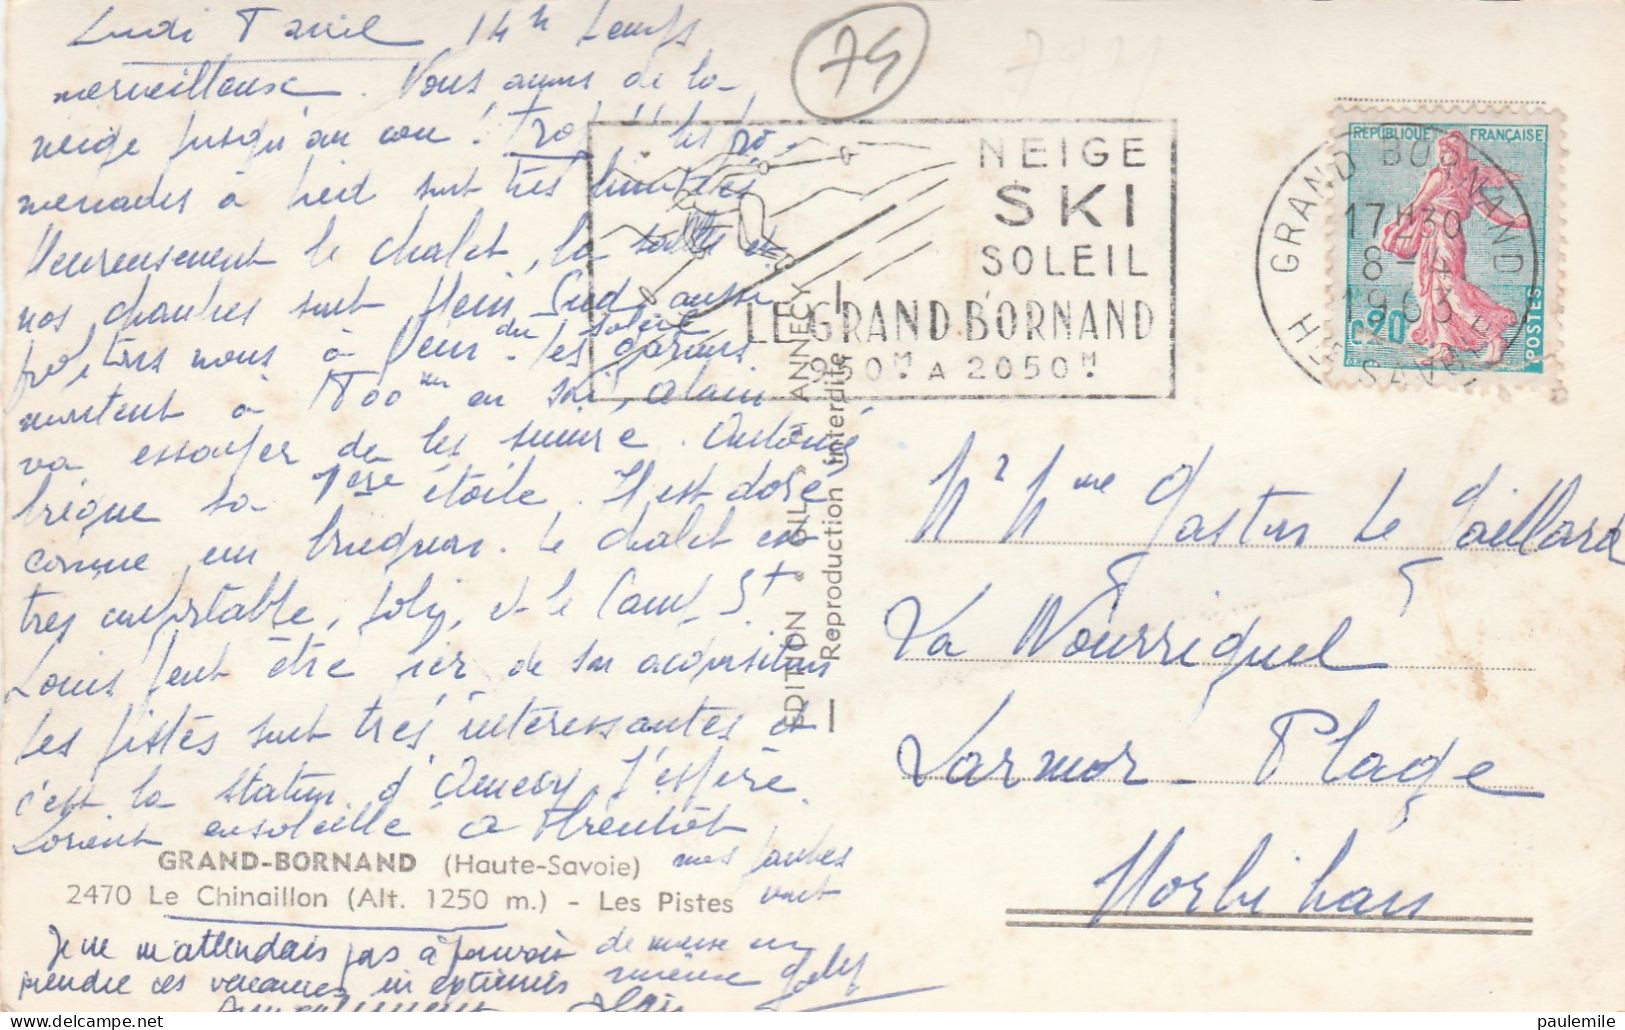 Lundi 8 avril 14h temps
merveilleux. Nous avons de la
neige jusqu'au cou ! trop !! les pro-
menades à pied sont très limitées
Heureusement le chalet, la salle et
nos chambres sont plein Sud, aussi
profitons nous à plein du soleil - les garçons
montent à 1800 m en ski, Alain
va essayer de les suivre. Antoine
brigue sa 1ère étoile. Il est doré
comme un brugnon. Le chalet est
très confortable, joli, et le Camp St
Louis peut être fier de son acquisition
Les pistes sont très intéressantes et
c'est la station d'Annecy. J'espère
Lorient ensoleillé à bientôt
mes jambes
vont
de mieux en
mieux
Je ne m'attendais pas à pouvoir
prendre ces vacances in extremis
Amicalement Alain
74
NEIGE
SKI
SOLEIL
LE GRAND BORNAND
950 M. A 2050 M.
GRAND BORNAND
17H30
8-4
1963
HTE SAVOIE
RÉPUBLIQUE FRANÇAISE
0,20
POSTES
EDITION « GIL » - ANNECY
Reproduction interdite
Mr Mme Gaston Le Gaillard
La Nourriguel
Larmor-Plage
Morbihan
GRAND-BORNAND (Haute-Savoie)
2470 Le Chinaillon (Alt. 1250 m.) - Les Pistes
paulemile